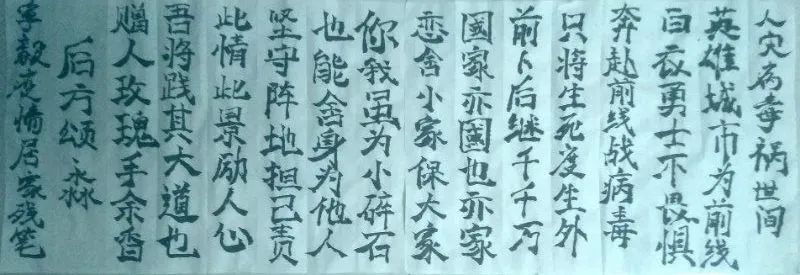 人灾病毒祸世间
英雄城市为前线
白衣勇士不畏惧
奔赴前线战病毒
只将生死度生外
前卜后继千千万
國家亦國也亦家
恋舍小家保大家
你我虽为小碎石
也能舍身为他人
坚守阵地担己责
此情此景励人心
吾将践其大道也
赠人玫瑰手余香
后方颂 淼
李毅 疫情居家残笔